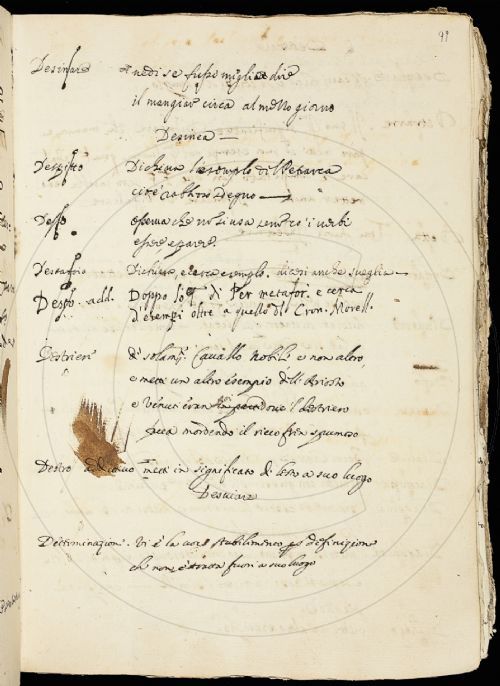 99
Desinare vedi se fusse meglio dire
il mangiar circa al mezzo giorno
Desinea
Despitto Dichiara l'esempio di Petrarca
cioè rabbioso sdegno
Desso osserva che non si usa senon co i verbi
essere e parere.
Destatoio Dichiara, e cerca esempio, dicesi anche sveglia
Desto. add. Doppo di Per metafor. e cerca
d'esempi oltre a quello di Cron. Morell.
Destriere di solam. Cavallo nobile e non altro
e metti un altro esempio dell'Ariosto
e il destriero
mordendo il ricco fren spumoso
Destro addiettivo metti in significato di lesto a suo luogo
Desviare
Determinazione. Vi è la voce stabilimento definizione
che non è tirata fuori a suo luogo